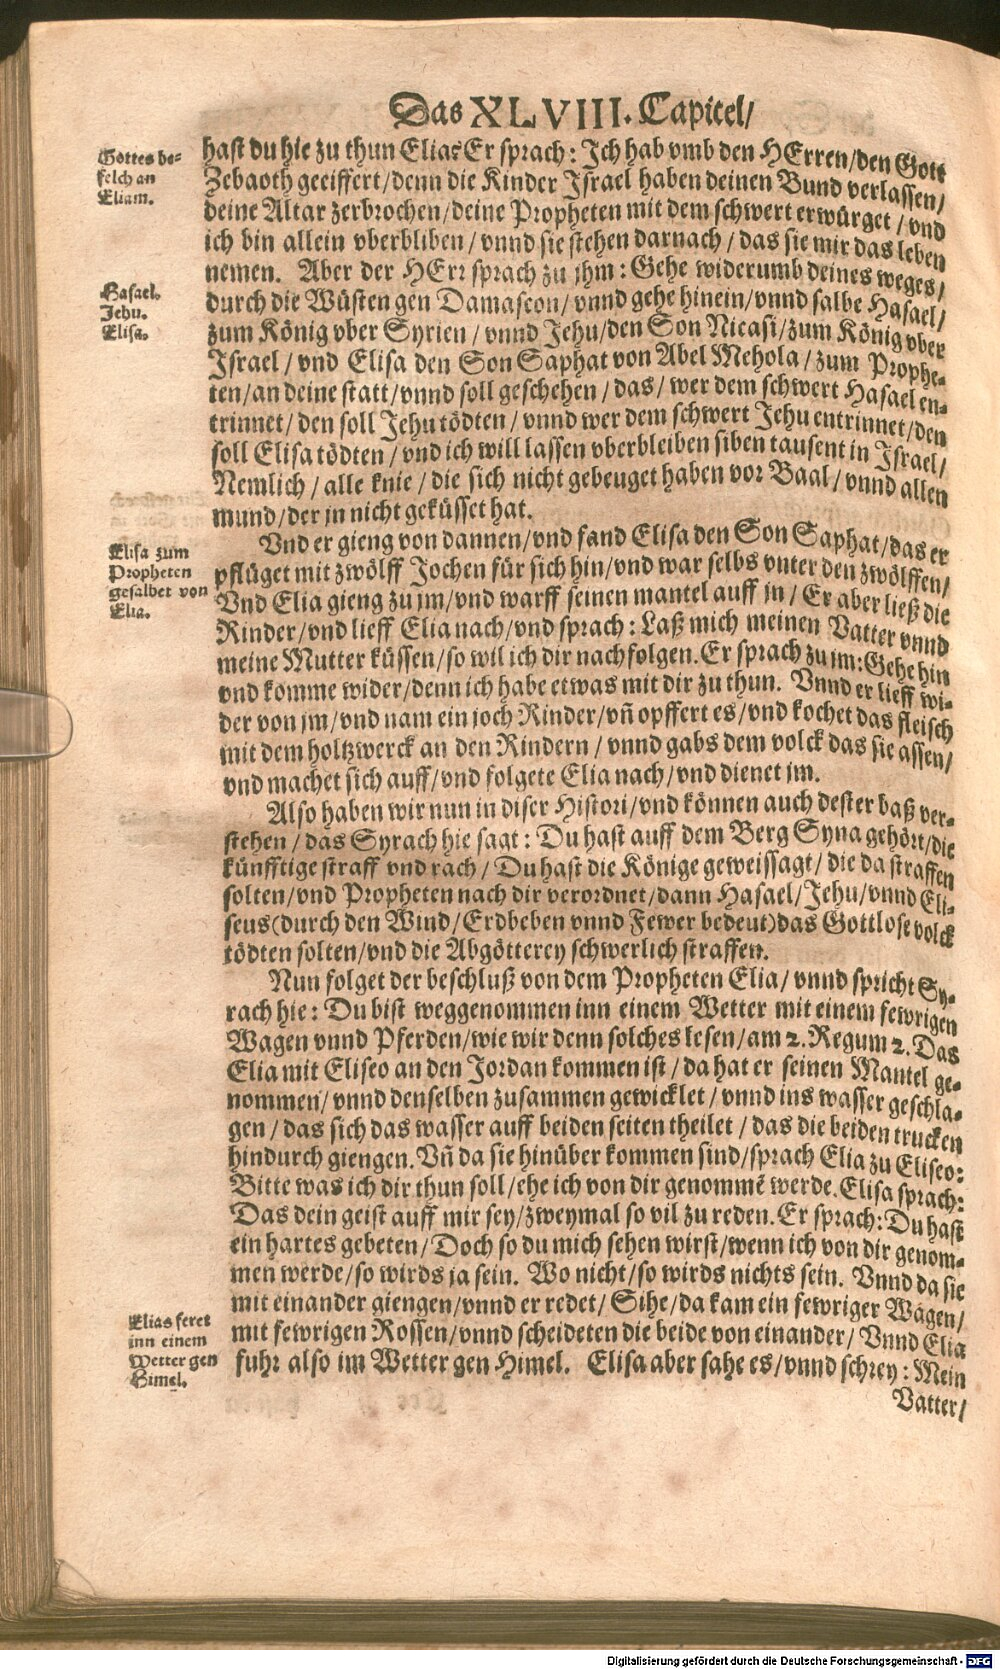 Das XLVIII. Capitel/
Gottes be-
felch an
Eliam.
hast du hie zu thun Elia? Er sprach: Ich hab vmb den HErren/den Gott
Zebaoth geeiffert/denn die Kinder Israel haben deinen Bund verlassen/
deine Altar zerbrochen/deine Propheten mit dem schwert erwürget/vnd
ich bin allein vberbliben/vnnd sie stehen darnach/das sie mir das leben
nemen. Aber der HErr sprach zu jhm: Gehe widerumb deines weges/
Hasael.
Jehu.
Elisa.
durch die Wüsten gen Damascon/vnnd gehe hinein/vnnd salbe Hasael/
zum König vber Syrien/vnnd Jehu/den Son Nicasi/zum König vber
Israel/vnd Elisa den Son Saphat von Abel Mehola/zum Prophe-
ten/an deine statt/vnnd soll geschehen/das/wer dem schwert Hasael en-
trinnet/den soll Jehu tödten/vnnd wer dem schwert Jehu entrinnet/den
soll Elisa tödten/vnd ich will lassen vberbleiben siben tausent in Israel/
Nemlich/alle knie/die sich nicht gebeuget haben vor Baal/vnnd allen
mund/der jn nicht geküsset hat.
Elisa zum
Propheten
gesalbet von
Elia.
Vnd er gieng von dannen/vnd fand Elisa den Son Saphat/das er
pflüget mit zwölff Jochen für sich hin/vnd war selbs vnter den zwölffen/
Vnd Elia gieng zu jm/vnd warff seinen mantel auff jn/Er aber ließ die
Rinder/vnd lieff Elia nach/vnd sprach: Laß mich meinen Vatter vnnd
meine Mutter küssen/so wil ich dir nachfolgen. Er sprach zu jm: Gehe hin
vnd komme wider/denn ich habe etwas mit dir zu thun. Vnnd er lieff wi-
der von jm/vnd nam ein joch Rinder/vñ opffert es/vnd kochet das fleisch
mit dem holtzwerck an den Rindern/vnnd gabs dem volck das sie assen/
vnd machet sich auff/vnd folgete Elia nach/vnd dienet jm.
Also haben wir nun in diser Histori/vnd können auch dester baß ver-
stehen/das Syrach hie sagt: Du hast auff dem Berg Syna gehört/die
künfftige straff vnd rach/Du hast die Könige geweissagt/die da straffen
solten/vnd Propheten nach dir verordnet/dann Hasael/Jehu/vnnd Eli-
seus (durch den Wind/Erdbeben vnnd Fewer bedeut) das Gottlose volck
tödten solten/vnd die Abgötterey schwerlich straffen.
Nun folget der beschluß von dem Propheten Elia/vnnd spricht Sy-
rach hie: Du bist weggenommen inn einem Wetter mit einem fewrigen
Wagen vnnd Pferden/wie wir denn solches lesen/am 2. Regum 2. Das
Elia mit Eliseo an den Jordan kommen ist/da hat er seinen Mantel ge-
nommen/vnnd denselben zusammen gewicklet/vnnd ins wasser geschla-
gen/das sich das wasser auff beiden seiten theilet/das die beiden trucken
hindurch giengen. Vñ da sie hinüber kommen sind/sprach Elia zu Eliseo:
Bitte was ich dir thun soll/ehe ich von dir genommē werde. Elisa sprach:
Das dein geist auff mir sey/zweymal so vil zu reden. Er sprach: Du hast
ein hartes gebeten/Doch so du mich sehen wirst/wenn ich von dir genom-
men werde/so wirds ja sein. Wo nicht/so wirds nichts sein. Vnnd da sie
mit einander giengen/vnnd er redet/Sihe/da kam ein fewriger Wagen/
Elias feret
inn einem
Wetter gen
Himel.
mit fewrigen Rossen/vnnd scheideten die beide von einander/Vnnd Elia
fuhr also im Wetter gen Himel. Elisa aber sahe es/vnnd schrey: Mein
Vatter/
Digitalisierung gefördert durch die Deutsche Forschungsgemeinschaft - DFG